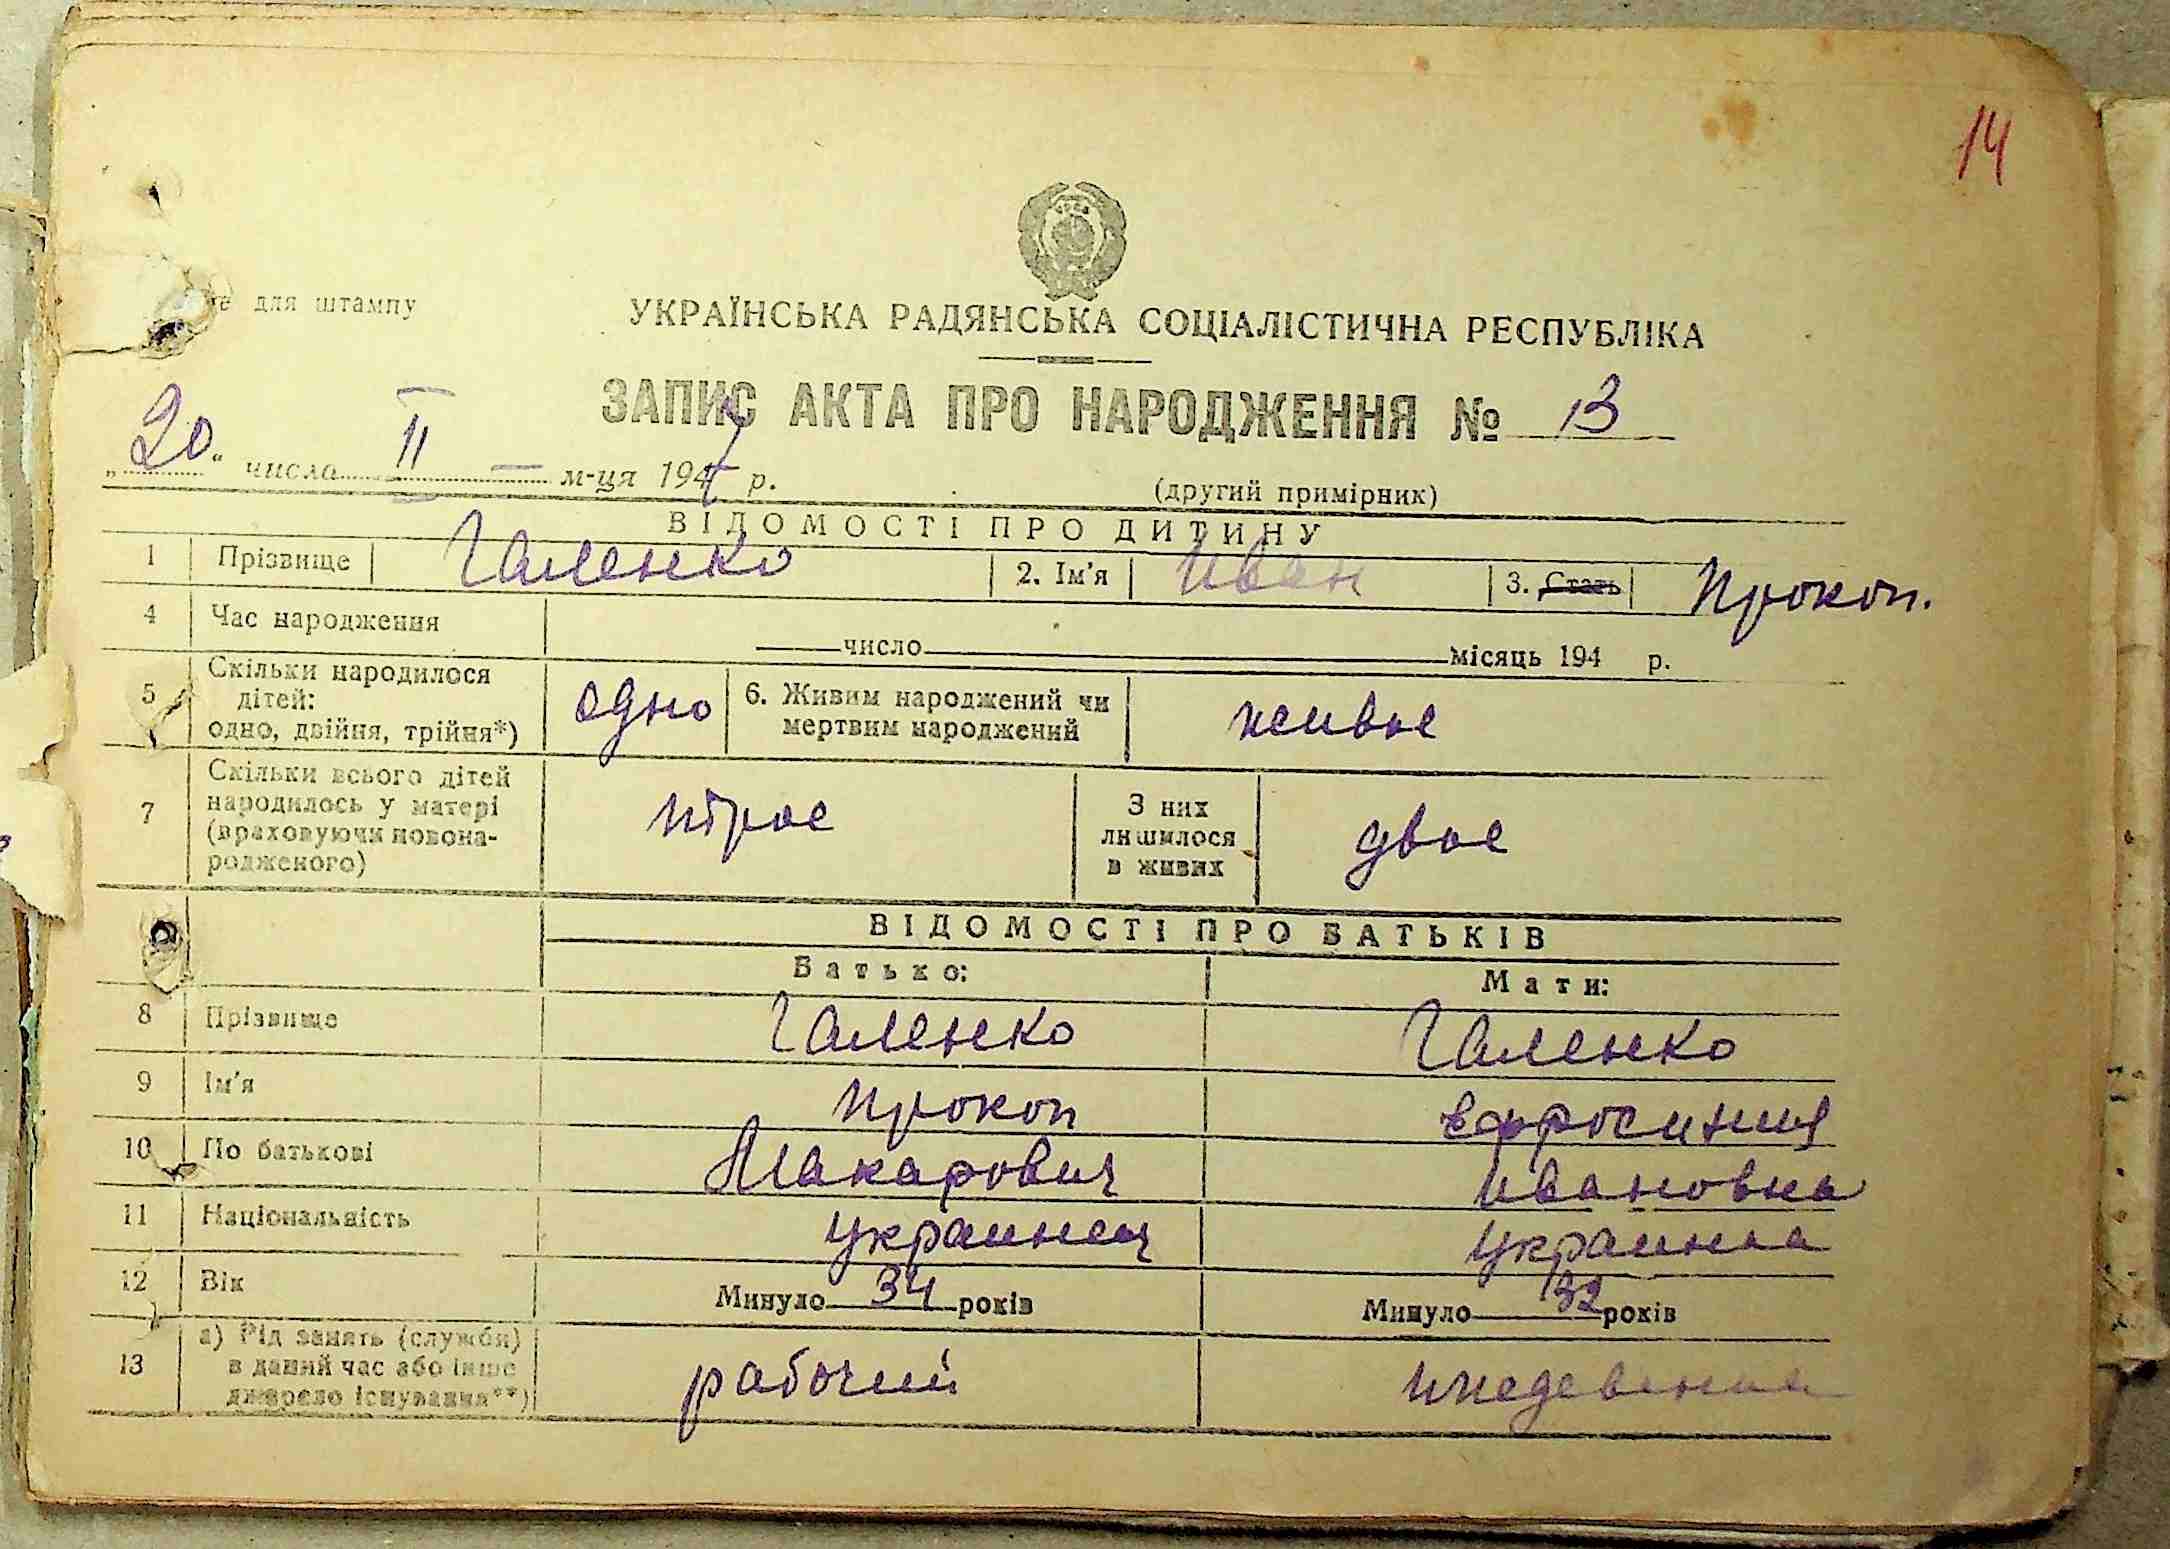 14
е для штампу
УКРАЇНСЬКА РАДЯНСЬКА СОЦІАЛІСТИЧНА РЕСПУБЛІКА
ЗАПИС АКТА ПРО НАРОДЖЕННЯ № 13
„20“ число II м-ця 1947 р.
(другий примірник)
ВІДОМОСТІ ПРО ДИТИНУ
1 Прізвище Галенко 2. Ім'я Иван 3. Стать Прокоп.
4 Час народження число місяць 194 р.
5 Скільки народилося дітей: одно, двійня, трійня*) одно 6. Живим народжений чи мертвим народжений живое
7 Скільки всього дітей народилось у матері (враховуючи новонародженого) трое З них лишилося в живих двое
ВІДОМОСТІ ПРО БАТЬКІВ
Батько: Мати:
8 Прізвище Галенко Галенко
9 Ім'я Прокоп Ефросиния
10 По батькові Макарович Ивановна
11 Національність украинец украинка
12 Вік Минуло 34 років Минуло 32 років
13 а) Рід занять (служби) в даний час або інше джерело існування**) рабочий иждевения